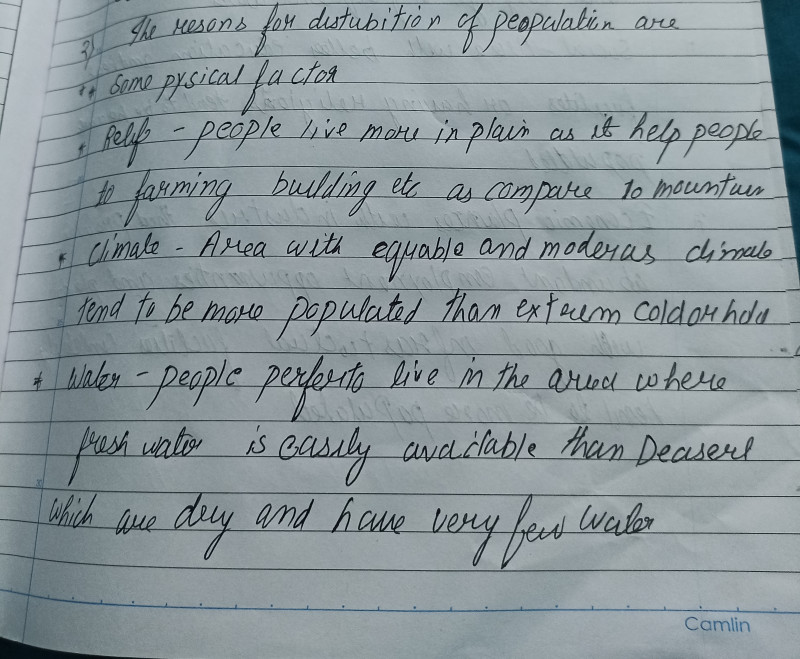 3) The resons for distubition of peopulation are
** Some pysical factor
* Relif - people live more in plain as it help people
to farming building etc as compare to mountain
* climate - Area with equable and moderas climate
tend to be more populated than extrem cold or hda
* Water - people perfer to live in the area where
fresh water is easily available than Deasert
which are dry and have very few water
Camlin